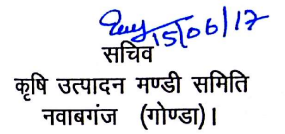 15/06/17
सचिव
कृषि उत्पादन मण्डी समिति
नवाबगंज (गोण्डा)।